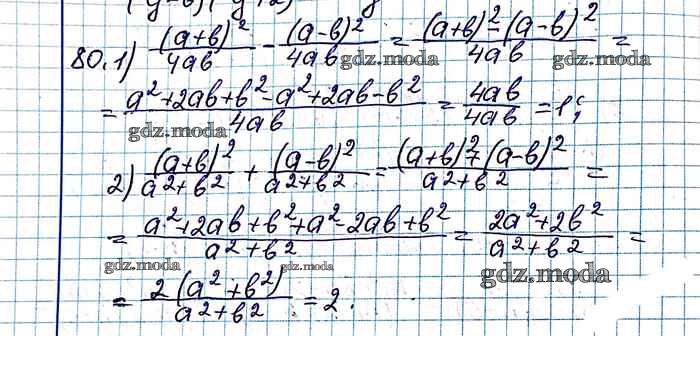 80. 1) (a+b)²/4ab - (a-b)²/4ab = (a+b)² - (a-b)²/4ab =
= a²+2ab+b²-a²+2ab-b²/4ab = 4ab/4ab = 1;
2) (a+b)²/a²+b² + (a-b)²/a²+b² = (a+b)²+(a-b)²/a²+b² =
= a²+2ab+b²+a²-2ab+b²/a²+b² = 2a²+2b²/a²+b² =
= 2(a²+b²)/a²+b² = 2.
gdz.moda
gdz.moda
gdz.moda
gdz.moda
gdz.moda
gdz.moda